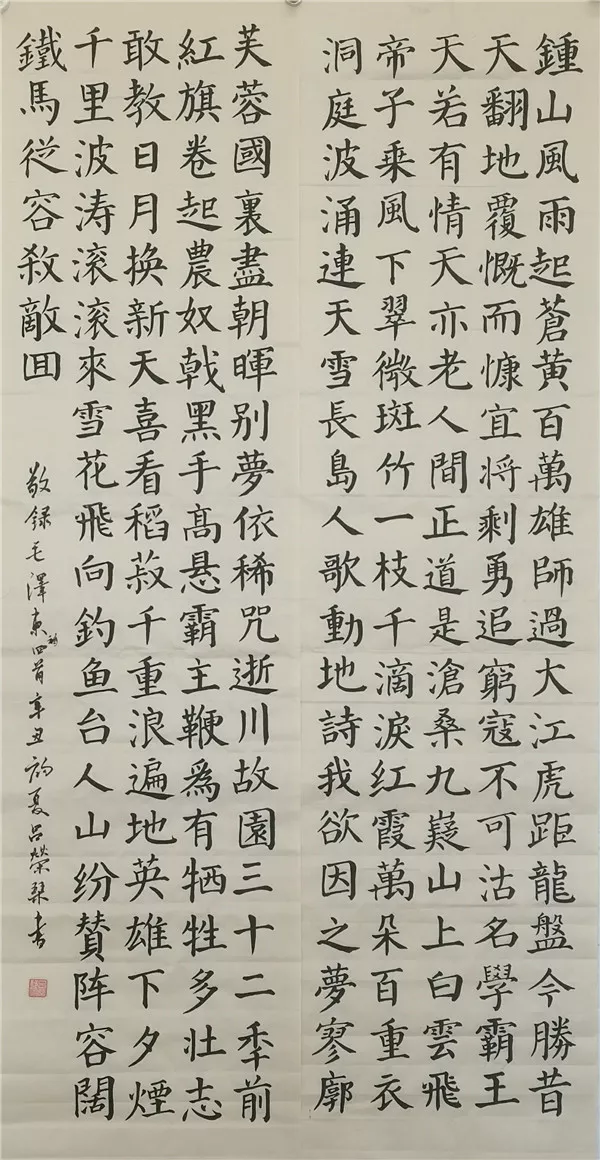 鍾山風雨起蒼黃百萬雄師過大江虎距龍盤今勝昔
天翻地覆慨而慷宜將剩勇追窮寇不可沽名學霸王
天若有情天亦老人間正道是滄桑九嶷山上白雲飛
帝子乘風下翠微斑竹一枝千滴淚紅霞萬朵百重衣
洞庭波涌連天雪長島人歌動地詩我欲因之夢寥廓
芙蓉國裏盡朝暉别夢依稀咒逝川故園三十二秊前
紅旗卷起農奴戟黑手髙悬霸主鞭爲有牺牲多壮志
敢教日月换新天喜看稻菽千重浪遍地英雄下夕煙
千里波涛滚滚來雪花飛向釣鱼台人山纷贊阵容闊
鐵馬從容殺敵囬
敬録毛澤東詩四首辛丑初夏吕榮琹书